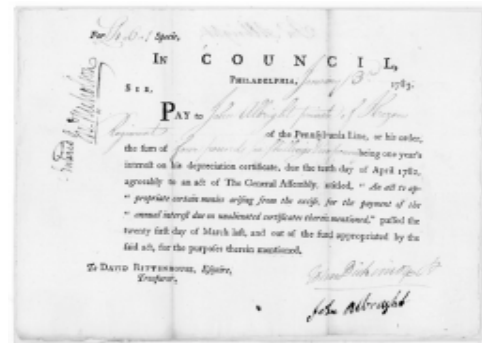 For
Specie,
IN COUNCIL,
PHILADELPHIA, January 3rd 1783.
SIR,
PAY to John Albright private of
Regiment of the Pennsylvania Line, or his order,
the sum of being one year's
interest on his depreciation certificate, due the tenth day of April 1782,
agreeably to an act of The General Assembly, entitled, "An act to ap-
"propriate certain monies arising from the excise, for the payment of the
"annual interest due on unalienated certificates therein mentioned," passed the
twenty first day of March last, and out of the fund appropriated by the
said act, for the purposes therein mentioned.
To DAVID RITTENHOUSE, Esquire,
Treasurer.
John Dickinson
John Albright